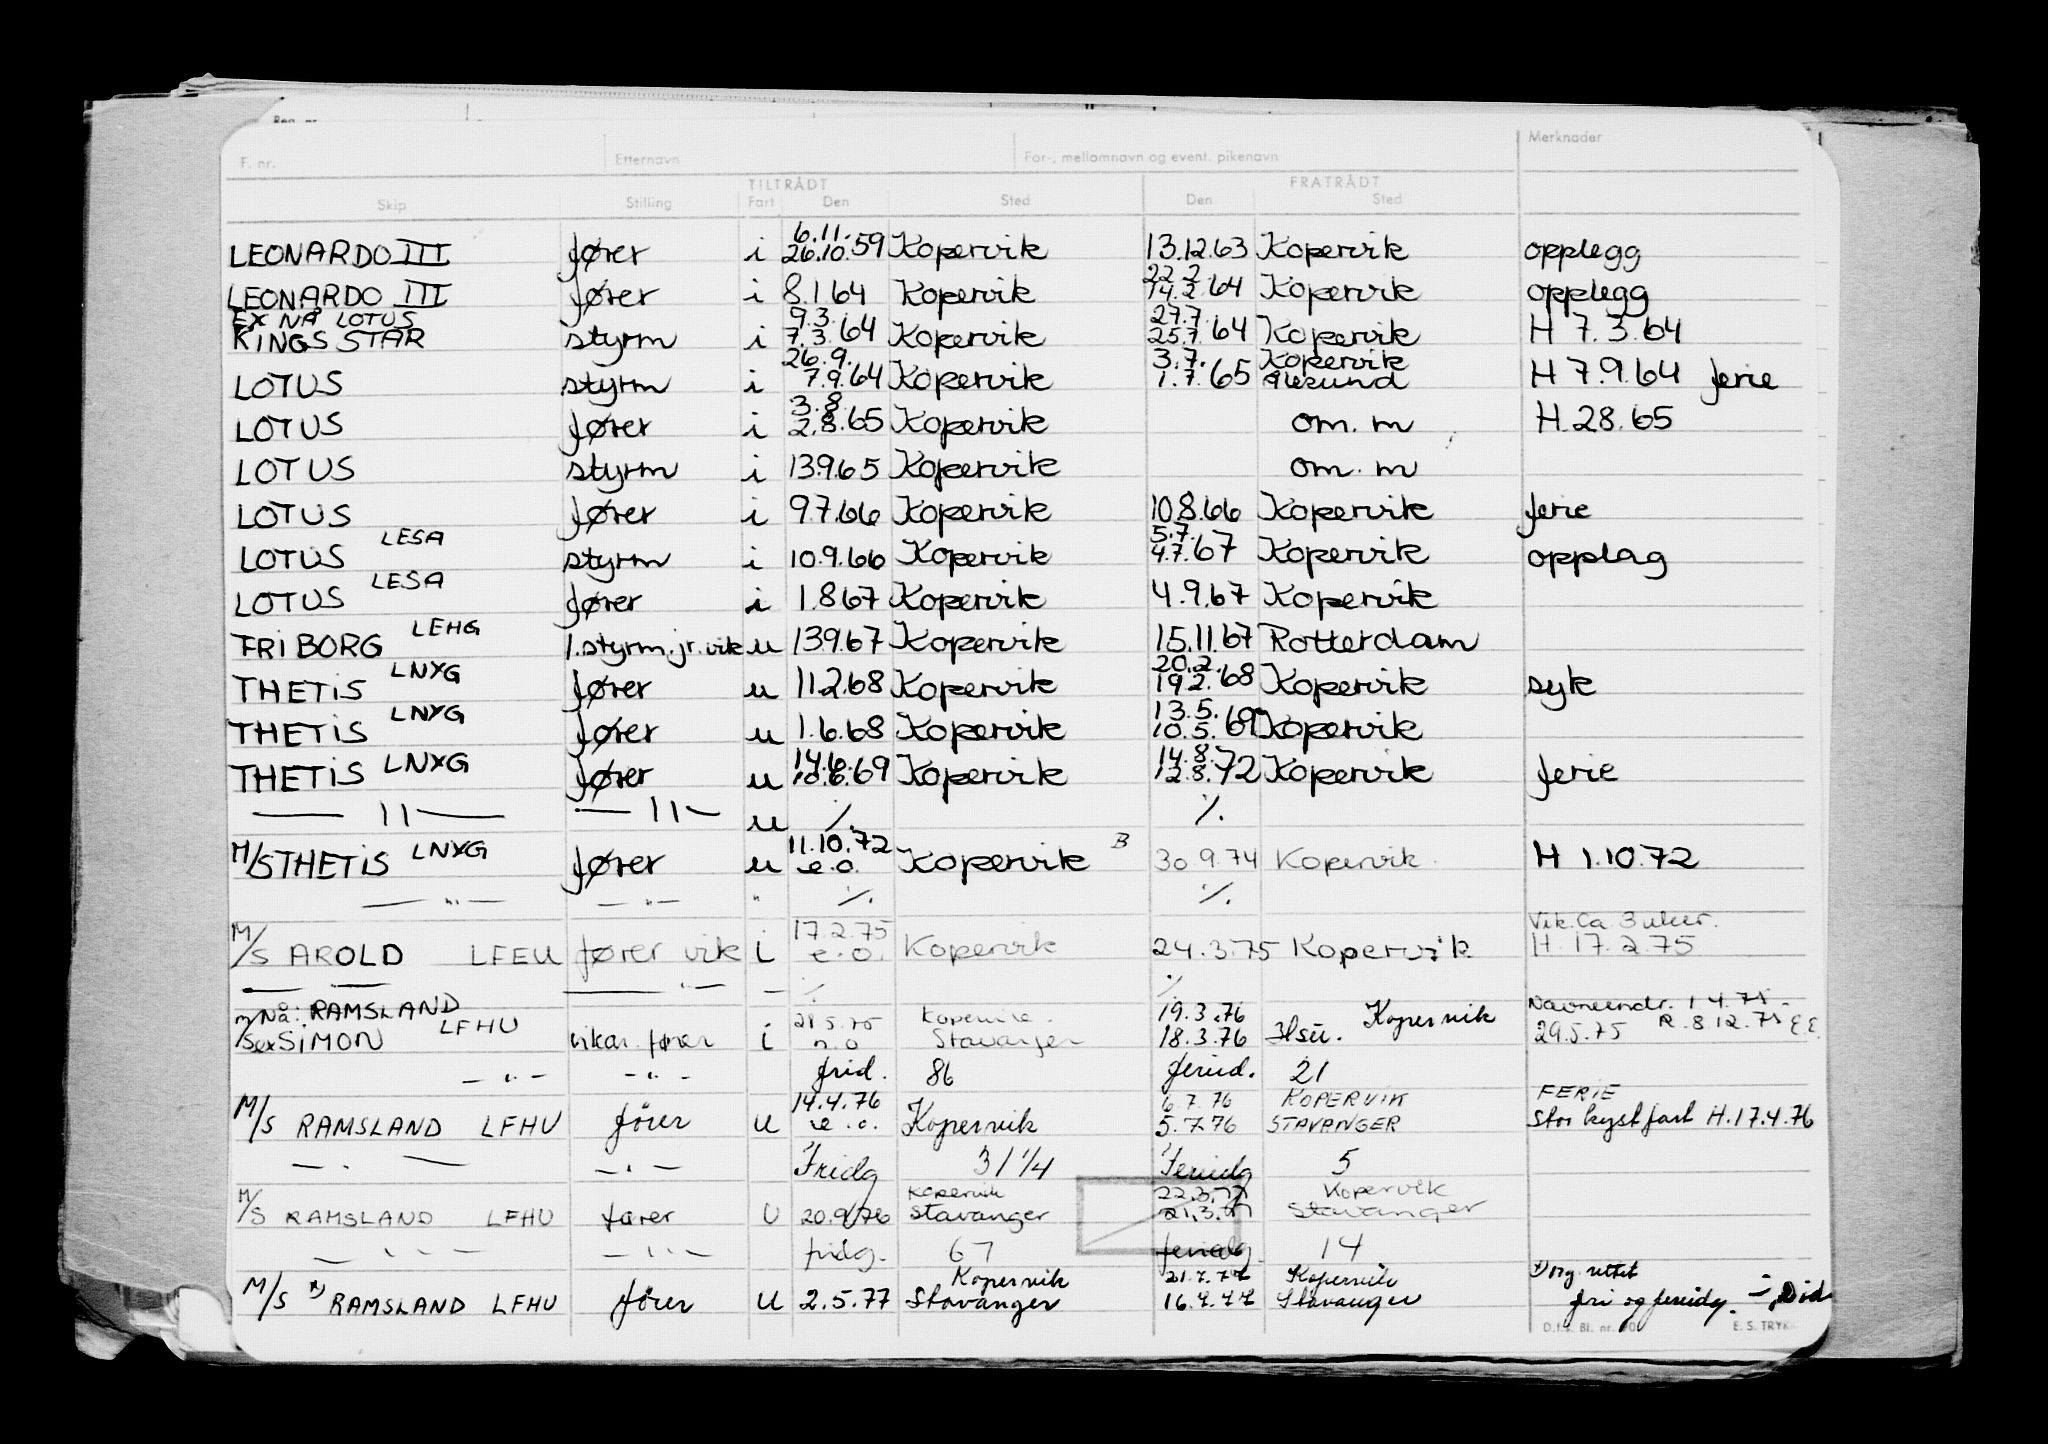 Reg. nr.
F. nr. Etternavn For-, mellomnavn og event. pikenavn Merknader
TILTRÅDT FRATRÅDT
Skip Stilling Fart Den Sted Den Sted
6.11.
LEONARDO III fører i 26.10.59 Kopervik 13.12.63 Kopervik opplegg
22.2
LEONARDO III fører i 8.1.64 Kopervik 14.2.64 Kopervik opplegg
EX NÅ LOTUS 9.3. 27.7.
KINGS STAR styrm i 7.3.64 Kopervik 25.7.64 Kopervik H 7.3.64
26.9. 3.7. Kopervik
LOTUS styrm i 7.9.64 Kopervik 1.7.65 Ålesund H 7.9.64 ferie
3.8.
LOTUS fører i 2.8.65 Kopervik om. m H.28.65
LOTUS styrm i 13.9.65 Kopervik om. m
LOTUS fører i 9.7.66 Kopervik 10.8.66 Kopervik ferie
LESA 5.7.
LOTUS styrm i 10.9.66 Kopervik 4.7.67 Kopervik opplag
LESA
LOTUS fører i 1.8.67 Kopervik 4.9.67 Kopervik
LEHG
FRIBORG 1.styrm.jr.vik u 13.9.67 Kopervik 15.11.67 Rotterdam
LNXG 20.2.
THETIS fører u 11.2.68 Kopervik 19.2.68 Kopervik syk
LNXG 13.5.
THETIS fører u 1.6.68 Kopervik 10.5.69 Kopervik
14.6. 14.8.
THETIS LNXG fører u 10.6.69 Kopervik 12.8.72 Kopervik ferie
— 11 — — 11 — u ./. ./.
11.10.72 B
M/S THETIS LNXG fører u e.o. Kopervik 30.9.74 Kopervik H 1.10.72
— " — — " — " ./. ./.
17.2.75 Vik. Ca. 3 uker.
M/S AROLD LFEU fører vik i e.o. Kopervik 24.3.75 Kopervik H. 17.2.75
— — — " — — ./. ./.
Nå: RAMSLAND 21.5.75 Kopervik 19.3.76 Kopervik Navneendr. 1.4.75
M/S ex SIMON LFHU vikar. fører i Stavanger 18.3.76 29.5.75 R.8.12.75
— " — — " — frid. 86 feried. 21
14.4.76 6.7.76 KOPERVIK FERIE
M/S RAMSLAND LFHU fører u e.o. Kopervik 5.7.76 STAVANGER Stor kystfart H.17.4.76
— . — — " — Fridg 31 1/4 Feriedg 5
Kopervik 22.3.77 Kopervik
M/S RAMSLAND LFHU fører U 20.9.76 Stavanger 21.3.77 Stavanger
— " — — " — fridg. 67 feriedg. 14
Kopervik 21.7.77 Kopervik x) org. rettet
M/S x) RAMSLAND LFHU fører U 2.5.77 Stavanger 16.7.77 Stavanger fri og feriedg.
E. S. TRYKK